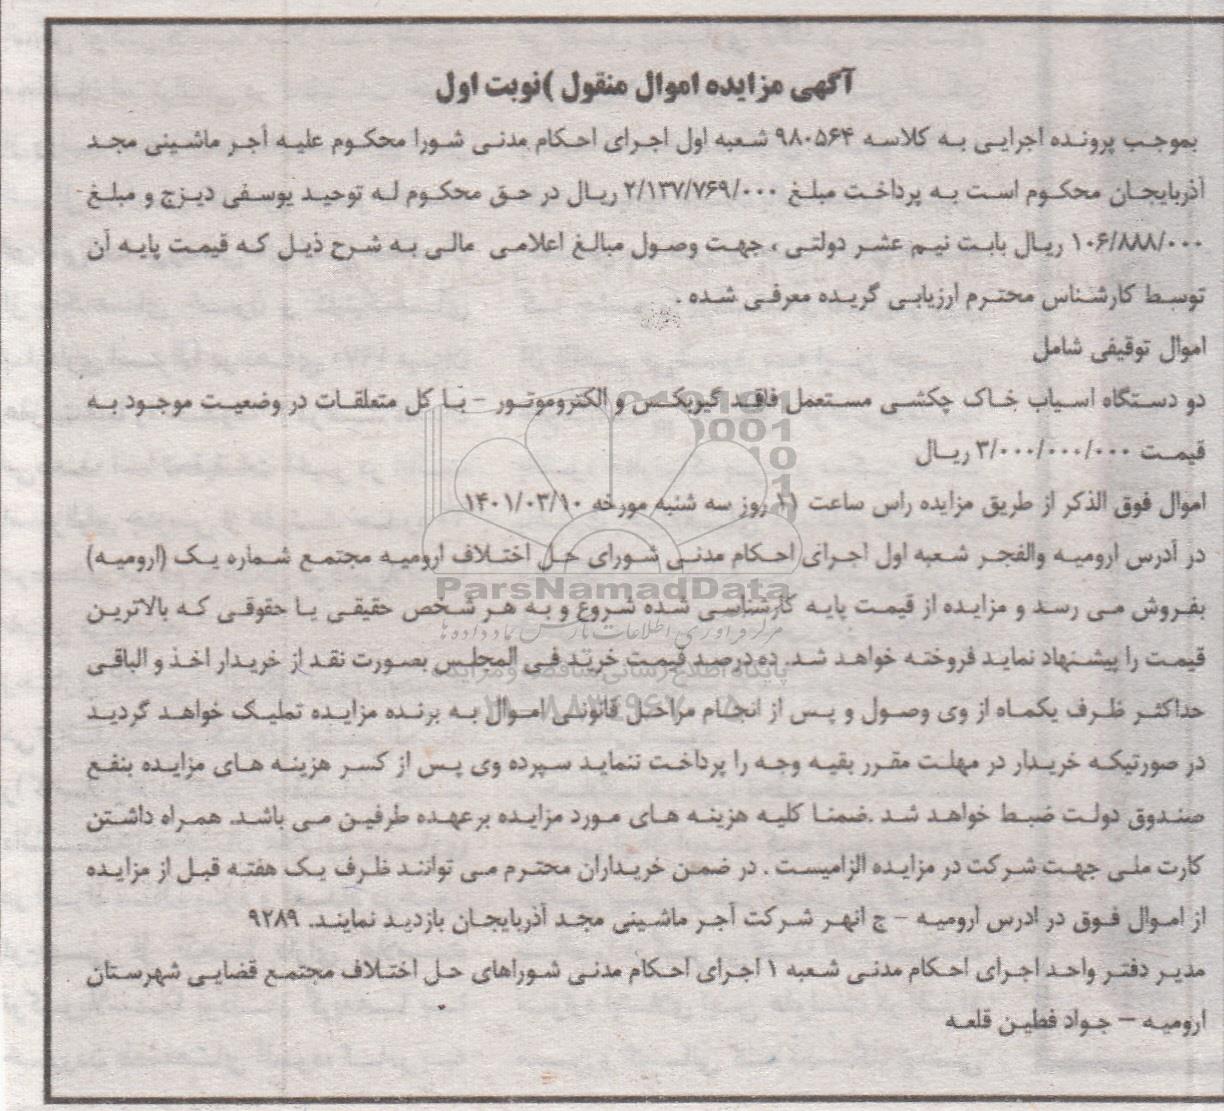 آگهی مزایده اموال منقول )نوبت اول
بموجب پرونده اجرایی به کلاسه ۹۸۰۵۶۴ شعبه اول اجرای احکام مدنی شورا محکوم علیه آجر ماشینی مجد
آذربایجان محکوم است به پرداخت مبلغ ۲/۱۳۷/۷۶۹/۰۰۰ ریال در حق محکوم له توحید یوسفی دیزج و مبلغ
۱۰۶/۸۸۸/۰۰۰ ریال بابت نیم عشر دولتی ، جهت وصول مبالغ اعلامی مالی به شرح ذیل که قیمت پایه آن
توسط کارشناس محترم ارزیابی گریده معرفی شده .
اموال توقیفی شامل
دو دستگاه اسیاب خاک چکشی مستعمل فاقد گیربکس و الکتروموتور - با کل متعلقات در وضعیت موجود به
قیمت ۳/۰۰۰/۰۰۰/۰۰۰ ریال
اموال فوق الذکر از طریق مزایده راس ساعت ۱۱ روز سه شنبه مورخه ۱۴۰۱/۰۳/۱۰
در آدرس ارومیه والفجر شعبه اول اجرای احکام مدنی شورای حل اختلاف ارومیه مجتمع شماره یک (ارومیه)
ParsNamadData
بفروش می رسد و مزایده از قیمت پایه کارشناسی شده شروع و به هر شخص حقیقی یا حقوقی که بالاترین
مرکز فرآوری اطلاعات پارس نماد داده ها
قیمت را پیشنهاد نماید فروخته خواهد شد. ده درصد قیمت خرید فی المجلس بصورت نقد از خریدار اخذ و الباقی
پایگاه اطلاع رسانی مناقصه و مزایده
حداکثر ظرف یکماه از وی وصول و پس از انجام مراحل قانونی اموال به برنده مزایده تملیک خواهد گردید
در صورتیکه خریدار در مهلت مقرر بقیه وجه را پرداخت ننماید سپرده وی پس از کسر هزینه های مزایده بنفع
صندوق دولت ضبط خواهد شد .ضمنا کلیه هزینه های مورد مزایده برعهده طرفین می باشد. همراه داشتن
کارت ملی جهت شرکت در مزایده الزامیست . در ضمن خریداران محترم می توانند ظرف یک هفته قبل از مزایده
از اموال فوق در ادرس ارومیه - ج انهر شرکت آجر ماشینی مجد آذربایجان بازدید نمایند. ۹۲۸۹
مدیر دفتر واحد اجرای احکام مدنی شعبه ۱ اجرای احکام مدنی شوراهای حل اختلاف مجتمع قضایی شهرستان
ارومیه – جواد فطین قلعه